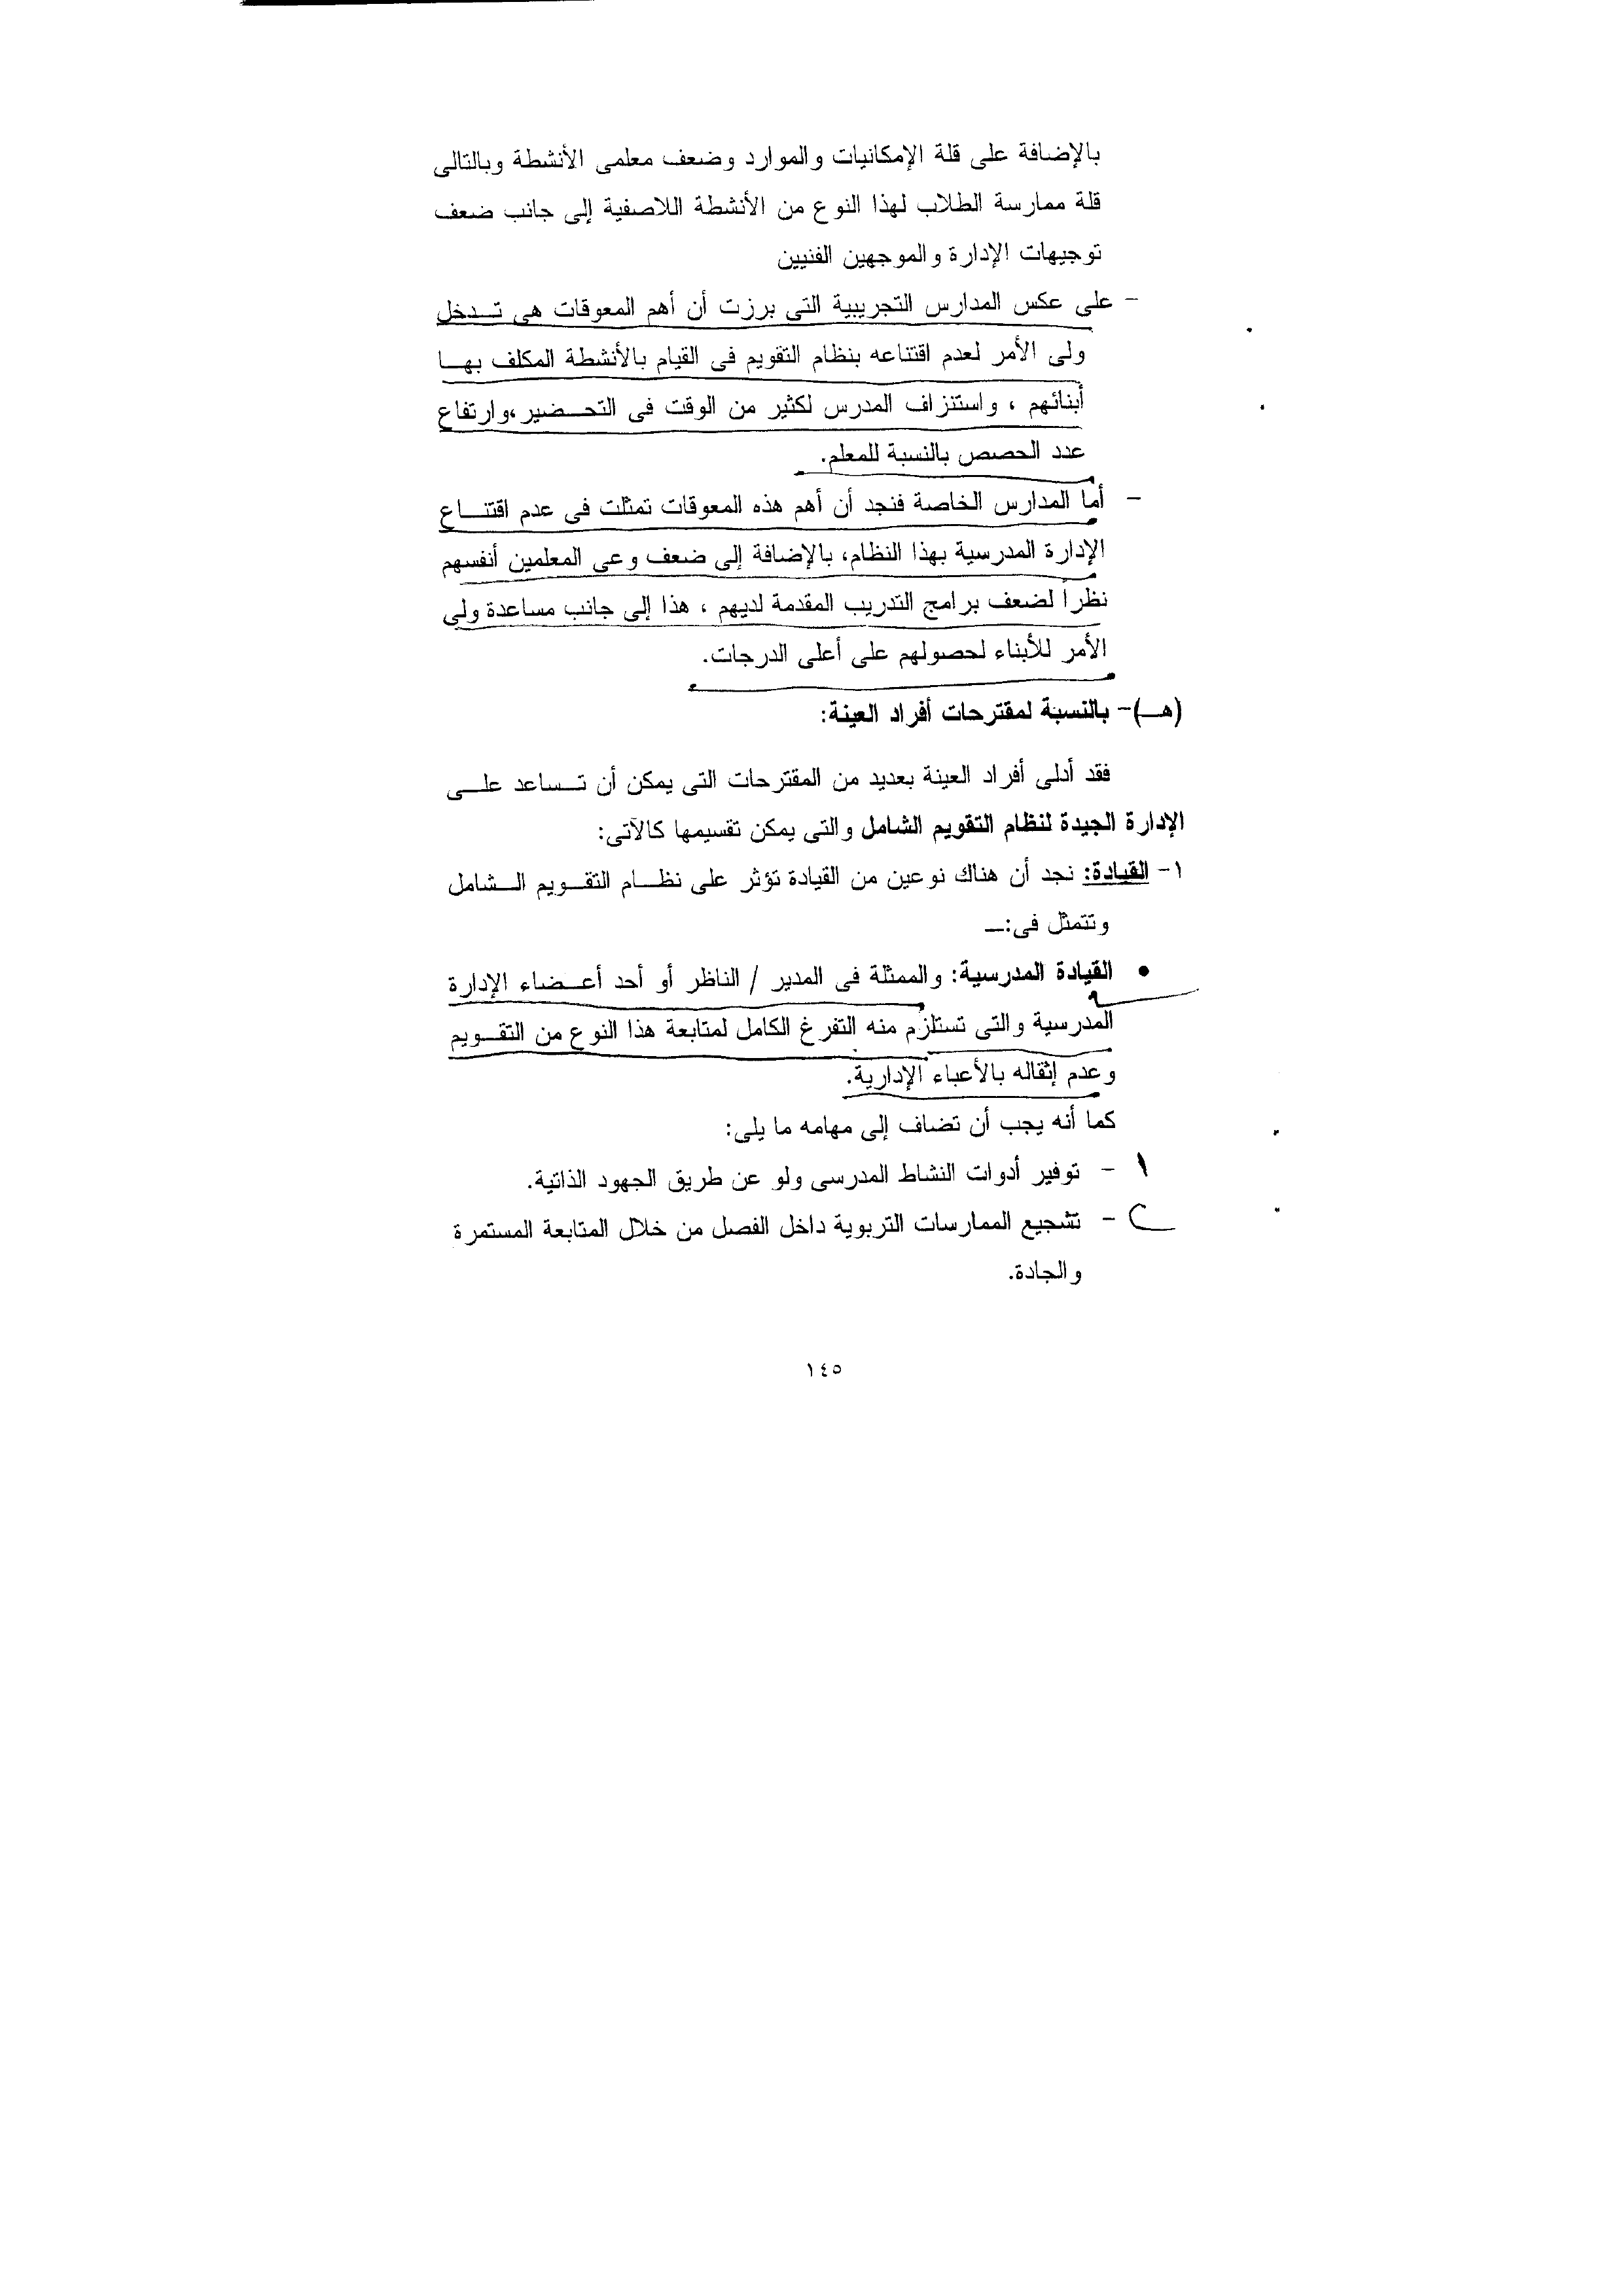 بالإضافة على قلة الإمكانيات والموارد وضعف معلمى الأنشطة وبالتالى
قلة ممارسة الطلاب لهذا النوع من الأنشطة اللاصفية إلى جانب ضعف
توجيهات الإدارة والموجهين الفنيين
- على عكس المدارس التجريبية التى برزت أن أهم المعوقات هى تـدخل
ولى الأمر لعدم اقتناعه بنظام التقويم فى القيام بالأنشطة المكلف بهـا
أبنائهم ، واستنزاف المدرس لكثير من الوقت فى التحـضير،وارتفاع
عدد الحصص بالنسبة للمعلم.
- أما المدارس الخاصة فنجد أن أهم هذه المعوقات تمثلت فى عدم اقتنـاع
الإدارة المدرسية بهذا النظام، بالإضافة إلى ضعف وعى المعلمين أنفسهم
نظراً لضعف برامج التدريب المقدمة لديهم ، هذا إلى جانب مساعدة ولى
الأمر للأبناء لحصولهم على أعلى الدرجات.
(هـ)- بالنسبة لمقترحات أفراد العينة:
فقد أدلى أفراد العينة بعديد من المقترحات التى يمكن أن تـساعد علـى
الإدارة الجيدة لنظام التقويم الشامل والتى يمكن تقسيمها كالآتى:
١- القيادة: نجد أن هناك نوعين من القيادة تؤثر على نظـام التقـويم الـشامل
وتتمثل فى:ـ
• القيادة المدرسية: والممثلة فى المدير / الناظر أو أحد أعـضاء الإدارة
المدرسية والتى تستلزم منه التفرغ الكامل لمتابعة هذا النوع من التقـويم
وعدم إثقاله بالأعباء الإدارية.
كما أنه يجب أن تضاف إلى مهامه ما يلى:
١ - توفير أدوات النشاط المدرسى ولو عن طريق الجهود الذاتية.
٢ - تشجيع الممارسات التربوية داخل الفصل من خلال المتابعة المستمرة
والجادة.
١٤٥